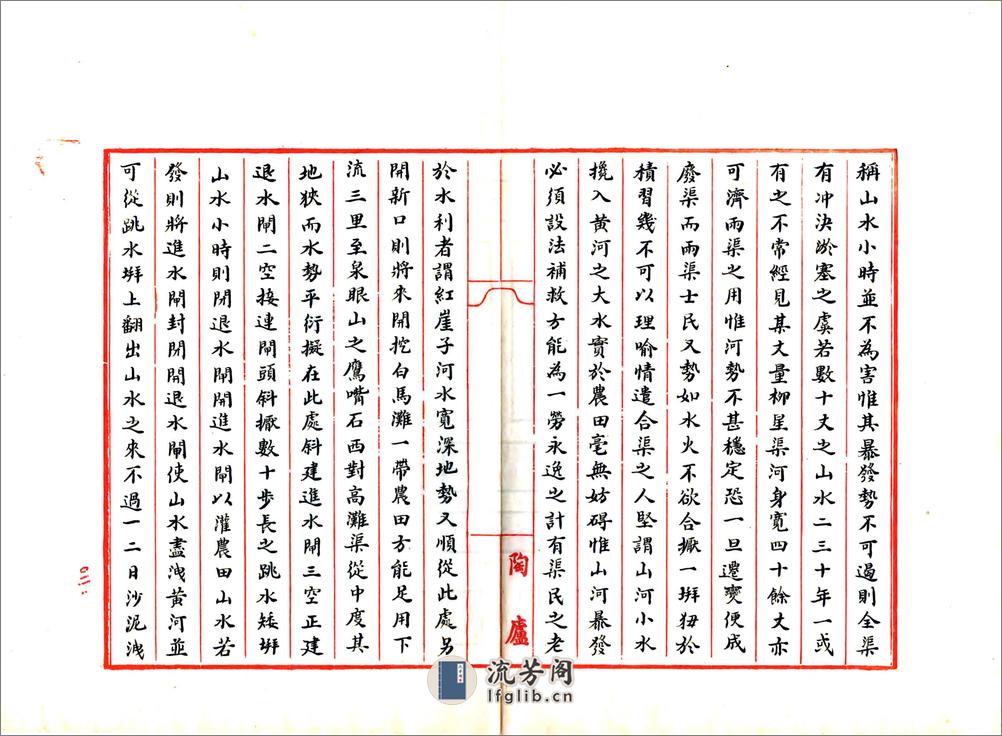 稱山水小時並不為害惟其暴發勢不可遏則全渠
有冲決淤塞之虞若數十丈之山水二三十年一或
有之不常經見某丈量柳星渠河身寬四十餘丈亦
可濟兩渠之用惟河勢不甚穩定恐一旦遷變便成
廢渠而兩渠士民又勢如水火不欲合撅一壩狃於
積習幾不可以理喻情遣合渠之人堅謂山河小水
攙入黃河之大水實於農田毫無妨碍惟山河暴發
必須設法補救方能為一勞永逸之計有渠民之老
於水利者謂紅崖子河水寬深地勢又順從此處另
開新口則將來開挖白馬灘一帶農田方能足用下
流三里至泉眼山之鷹嘴石西對高灘渠從中度其
地狹而水勢平衍擬在此處斜建進水閘三空正建
退水閘二空接連閘頭斜撅數十步長之跳水矮壩
山水小時則閉退水閘開進水閘以灌農田山水若
發則將進水閘封閉開退水閘使山水盡洩黃河並
可從跳水壩上翻出山水之來不過一二日沙泥洩
陶廬
流芳阁
lfglib.cn